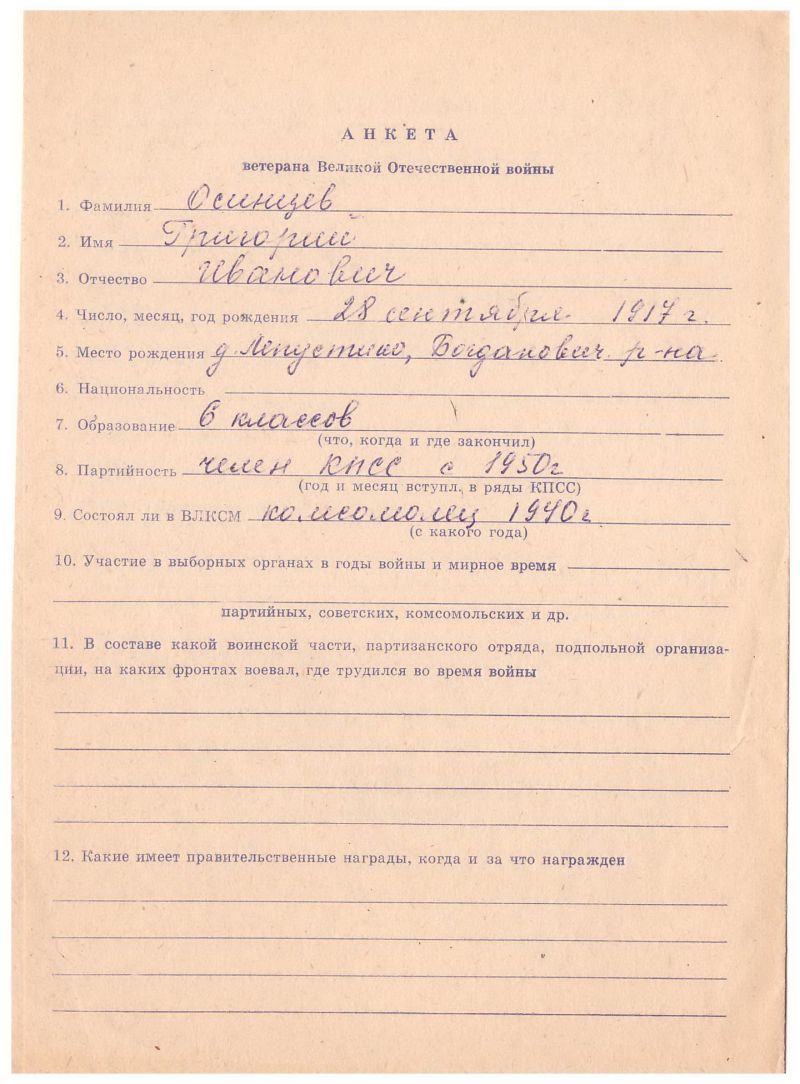 АНКЕТА
ветерана Великой Отечественной войны
1. Фамилия Осинцев
2. Имя Григорий
3. Отчество Иванович
4. Число, месяц, год рождения 28 сентября 1917 г.
5. Место рождения д. Лепустино, Богданович. р-на
6. Национальность
7. Образование 6 классов
(что, когда и где закончил)
8. Партийность челен КПСС с 1950г
(год и месяц вступл. в ряды КПСС)
9. Состоял ли в ВЛКСМ комсомолец 1940г
(с какого года)
10. Участие в выборных органах в годы войны и мирное время
партийных, советских, комсомольских и др.
11. В составе какой воинской части, партизанского отряда, подпольной организа-
ции, на каких фронтах воевал, где трудился во время войны
12. Какие имеет правительственные награды, когда и за что награжден